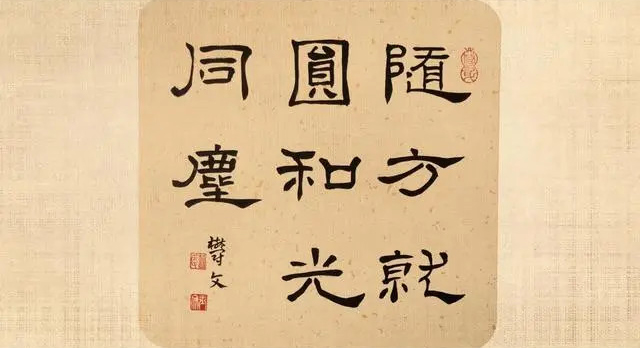 随方就
圓和光
同塵
文